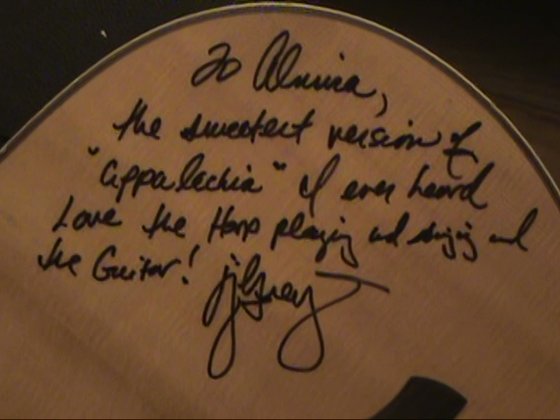 To Almira,
the sweetest version of
"Appalachia" I ever heard
Love the Harp playing and singing and
the Guitar!